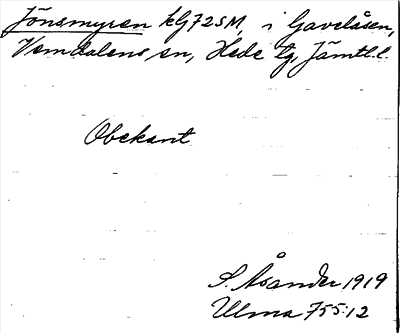 Jönsmyren kG72SM, i Gavelåsen,
Vemdalens sn, Hede tg, Jämtl. l.
Obekant
S. Åsander 1919
Ulma 755:12